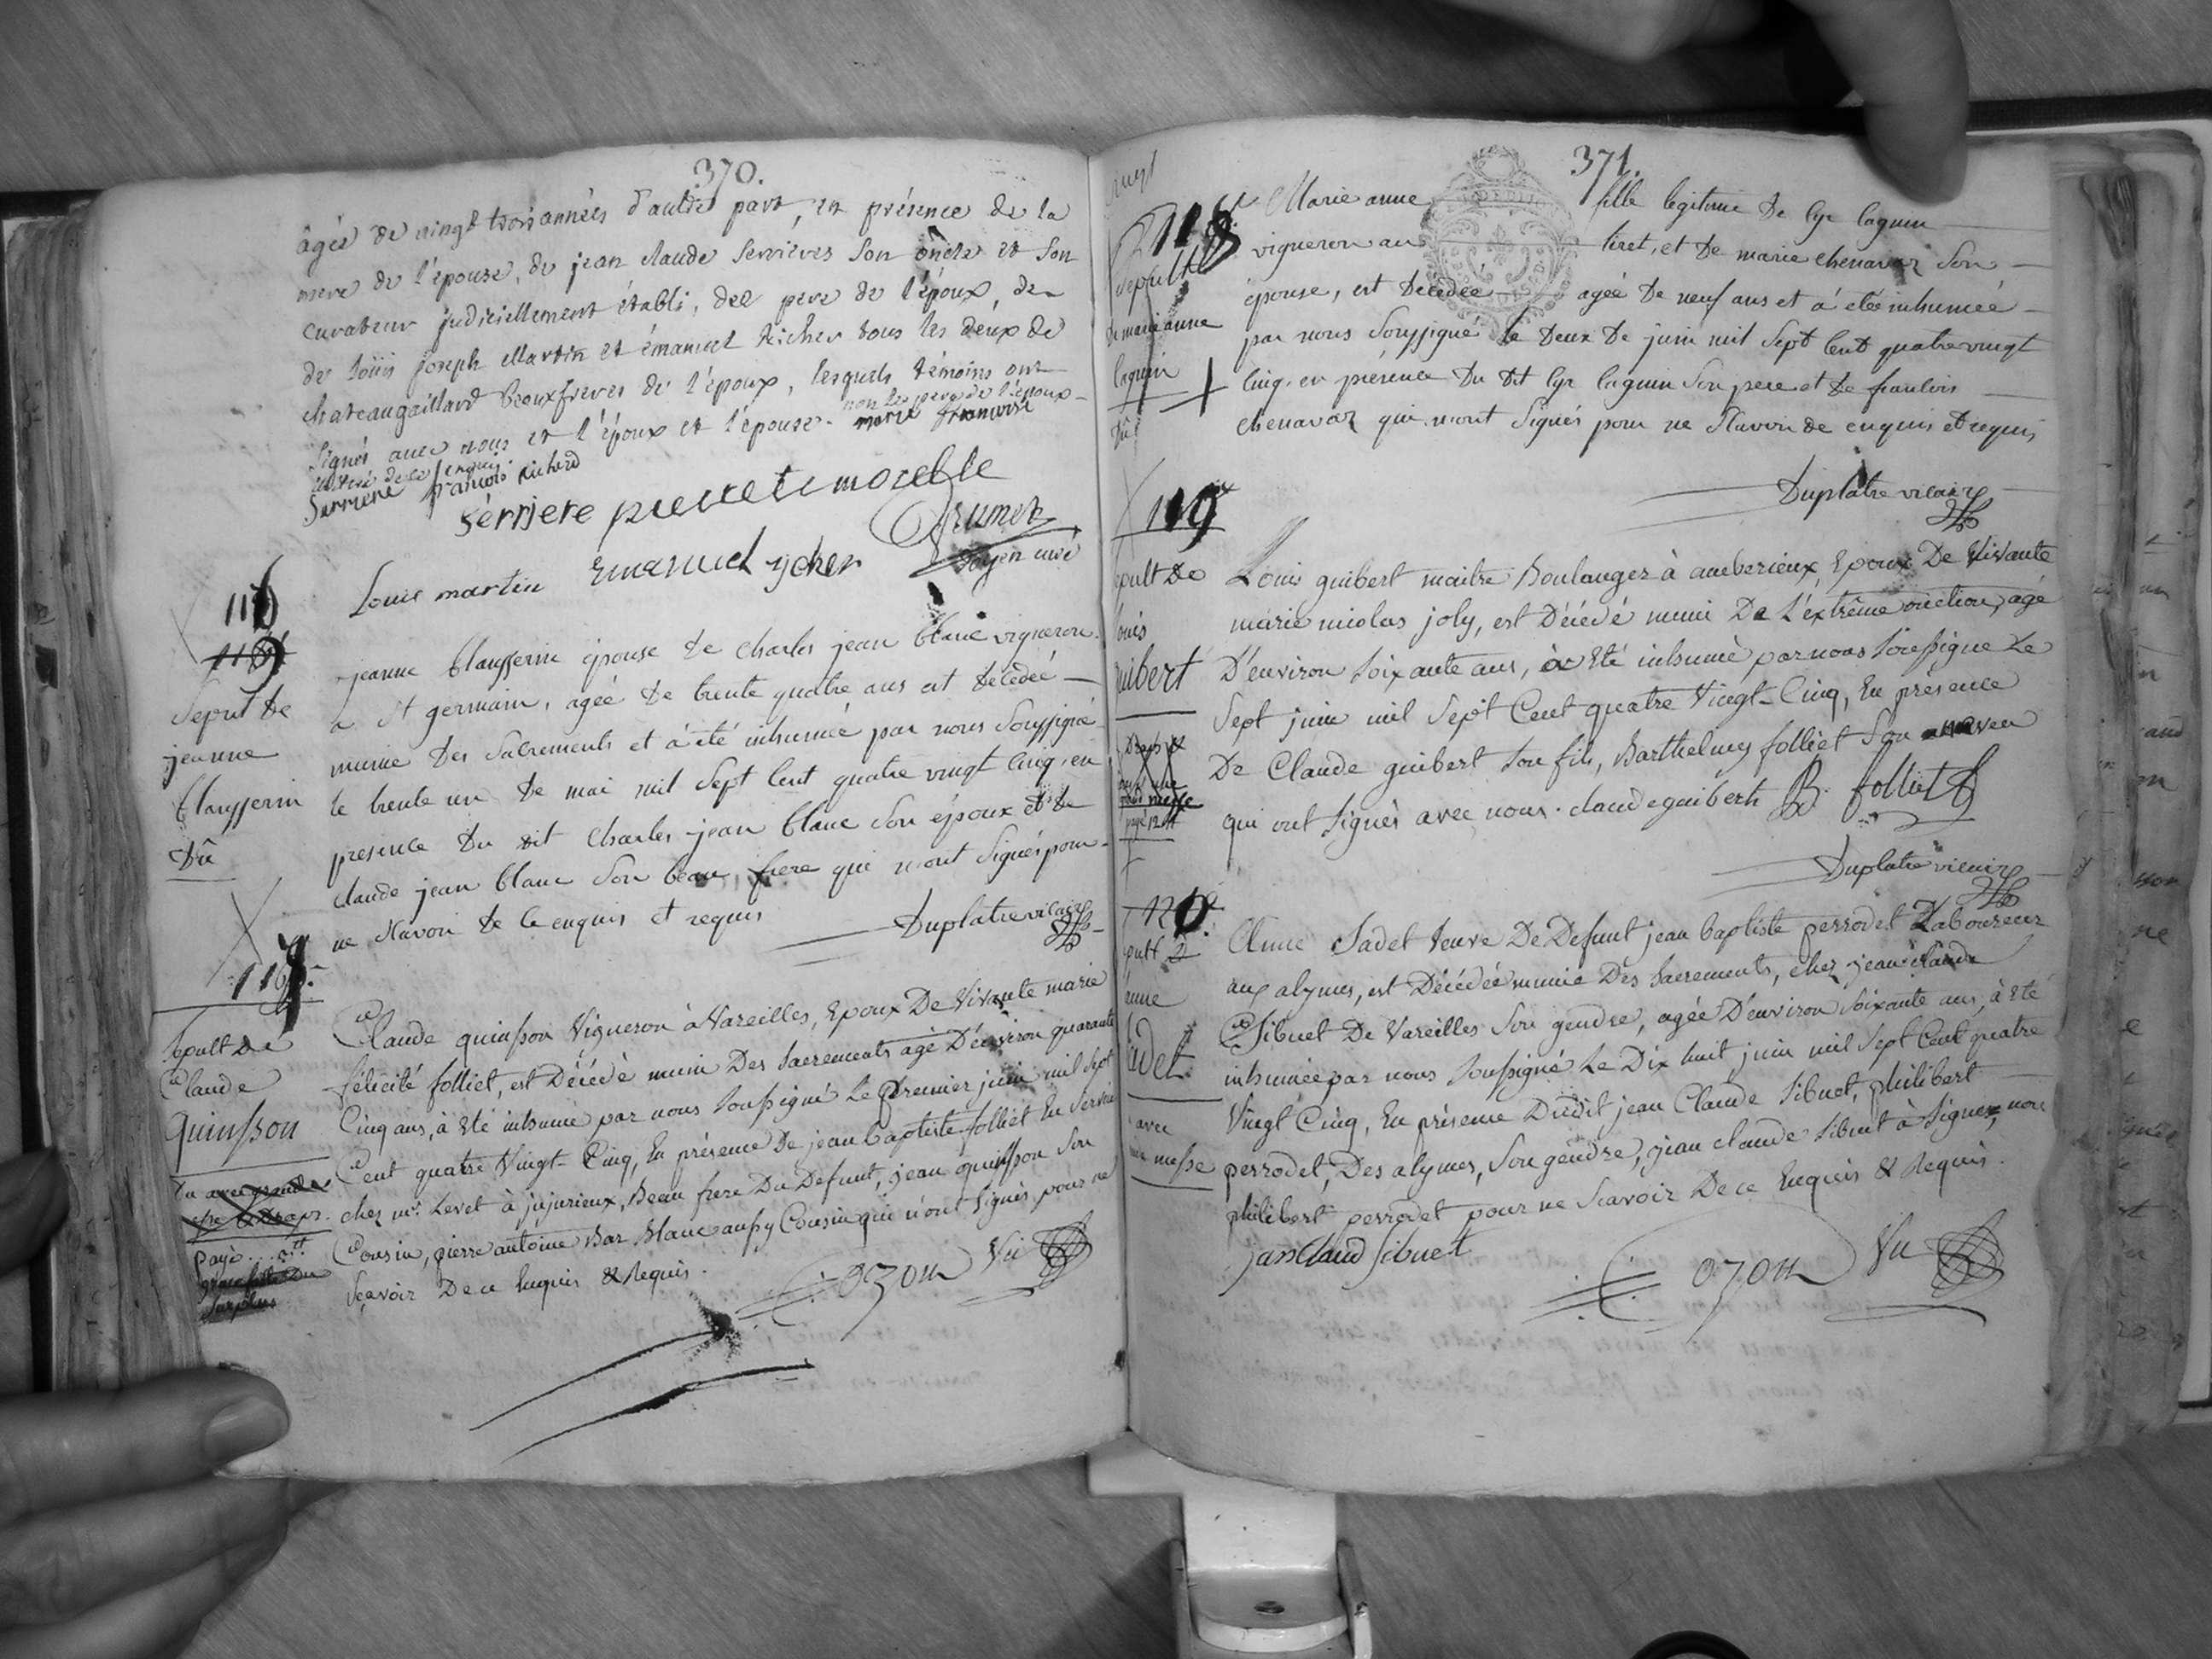 370.
âgée de vingt trois années d'autre part, en présence de la
mere de l'épouse, de jean claude serrieres son oncle et son
curateur judiciellement établi, del pere de l'époux, de
de loüis joseph Martin et émanuel richer tous les deux de
chateaugaillard beauxfreres de l'époux, lesquels témoins ont
non le pere de l'époux
signés avec nous et l'époux et l'épouse. marie francoise
Serriere francois richerd
serriere pierre timorelle
Louis martin Emanuel ycher doyen curé
116
119
Sepult de
jeanne
blansserin
dû
jeanne blansserin épouse de charles jean blanc vigneron
a St germain, agée de trente quatre ans est decedeé
munie des sacrements et a été inhumée par nous soussigné
le trente un de mai mil sept cent quatre vingt cinq, en
presence du dit charles jean blanc son époux et de
claude jean blanc son beau frere qui n'ont signés pour
ne scavoir de ce enquis et requis
Duplatre vicaire
117
Sepult de
Claude
Quinsson
payé
surplus
Claude quinsson Vigneron à Vareilles, Epoux De Vivante marie
félicité folliet, est Décédé muni Des sacrements agé D'environ quarante
Cinq ans, à Eté inhumé par nous soussigné Le premier juin mil sept
Cent quatre Vingt-Cinq, En présence De jean baptiste folliet En service
chez mr. Levet à jujurieux, Beau frere Du Defunt, jean quinsson son
Cousin, pierre antoine Bar Blanc aussy Cousin qui n'ont signés pour ne
sçavoir De ce Enquis & Requis.
Ozon Vic
371.
118
sepult
de marie anne
laguin
dû
Marie anne fille legitime de lyr laguin
vigneron au tiret, et de marie chenavaz son
épouse, est decedée agée de neuf ans et a été inhumeé
par nous soussigné le deux de juin mil sept cent quatre vingt
cinq, en présence du dit lyr laguin son pere et de francois
chenavaz qui n'ont signés pour ne scavoir de enquis et requis
Duplatre vicaire
119
sepult de
Louis
guibert
messe
payé 12
Louis guibert maitre Boulanger à amberieux, Epoux De Vivante
marie nicolas joly, est Décédé muni De L'extrême onction, agé
D'environ soixante ans, à Eté inhumé par nous soussigné Le
sept juin mil sept Cent quatre Vingt-Cinq, En présence
De Claude guibert son fils, Barthelmy folliet son neveu
qui ont signés avec nous. claude guibert B. folliet
Duplatre vicaire
120
sadet
avec
messe
Anne Sadet veuve De Defunt jean baptiste perrodet Laboureur
aux alymes, est Décédée munie Des sacrements, chez jean claude
Sibuet De Vareilles son gendre, agée D'environ soixante ans, à Eté
inhumée par nous soussigné Le Dix huit juin mil sept Cent quatre
Vingt Cinq, En présence Dudit jean Claude sibuet, philibert
perrodet, Des alymes, son gendre, jean claude sibuet à signez, non
philibert perrodet pour ne scavoir De ce Enquis & Requis.
jan Claud sibuet
Ozon Vic